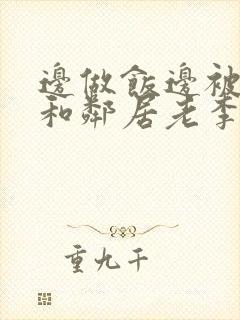 邊做飯邊被
和鄰居老李
重九千